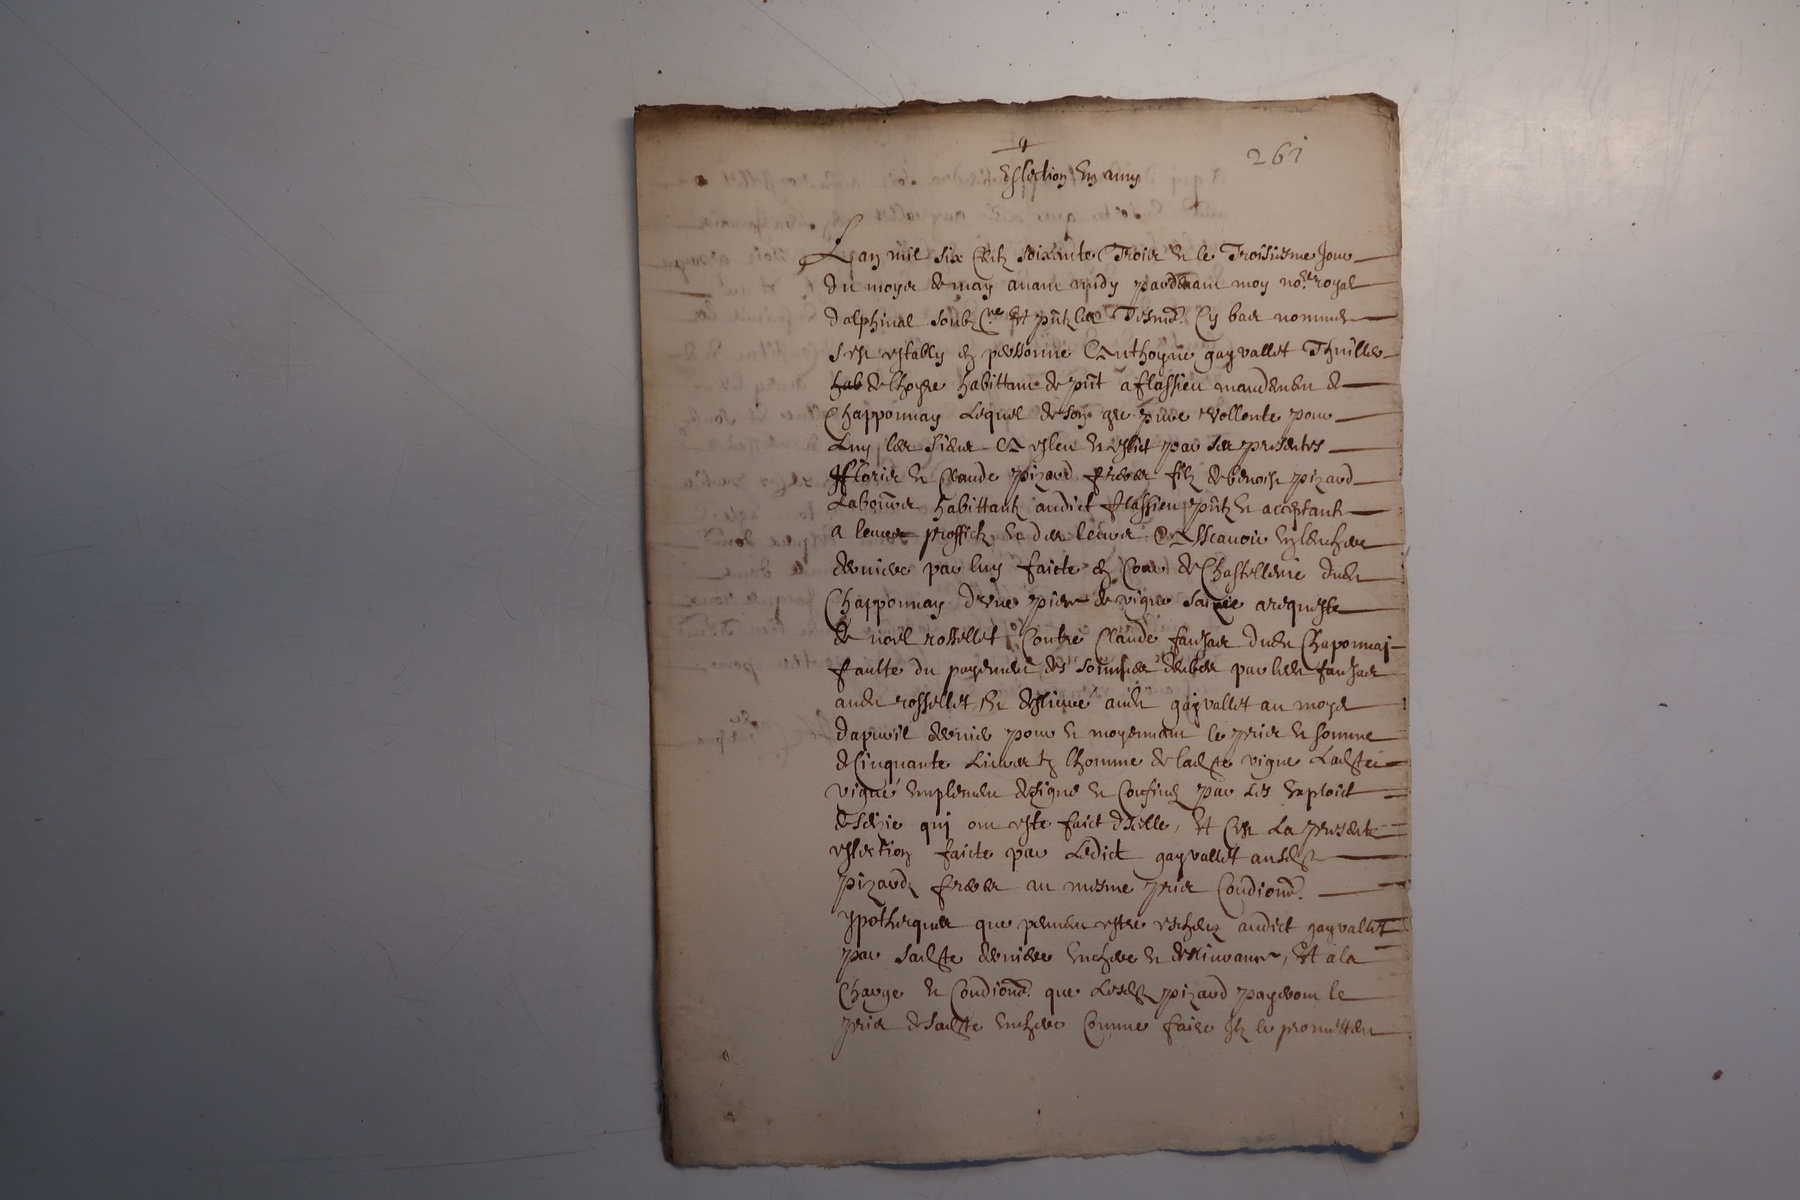 261
Eslection en amy
L'an mil six centz soixante trois et le troisiesme jour
du moys de may avant midy pardevant moy no.re royal
dalphinal soubz.ne et pñtz les tesmo. cy bas nommes
s'est estably en personne Anthoyne gayvallet
hab de habittant de pñt a flassieu mandement de
Chapponnay lequel de son gre pure vollonte pour
luy les siens A esleu et eslit par ses presentes
ffloris et Claude pizard freres filz de benoist pizard
Laboureur habittantz audict flassieu pñtz et acceptantz
a leurs proffictz et des leurs Assavoir l'enchere
derniere par luy faicte en Cour de Chastellenie dudt
Chapponnay d'une piece de vigne saizie a requeste
de noel rossellet Contre Claude faujas dudt Chaponnay
faulte du payement des sommes deubes par ledt faujas
audt rossellet et deslivré audt gayvallet au moys
d'apvril dernier pour et moyennant le pris et somme
de Cinquante Livres lhomme de ladte vigne Ladte
vigne emplement designé et Confiné par les exploict
de seizie qui ont este faict d'icelle, Et c'est la presente
eslection faicte par Ledict gayvallet ausdt
pizardz freres au mesme pris Condions.
ypotheques que peuvent estre escheuz audict gayvallet
par sadte derniere enchere et deslivrance, Et a la
Charge et Condions. que Lesdt pizard payeront le
pris de ladte enchere Comme faire ilz le promettent